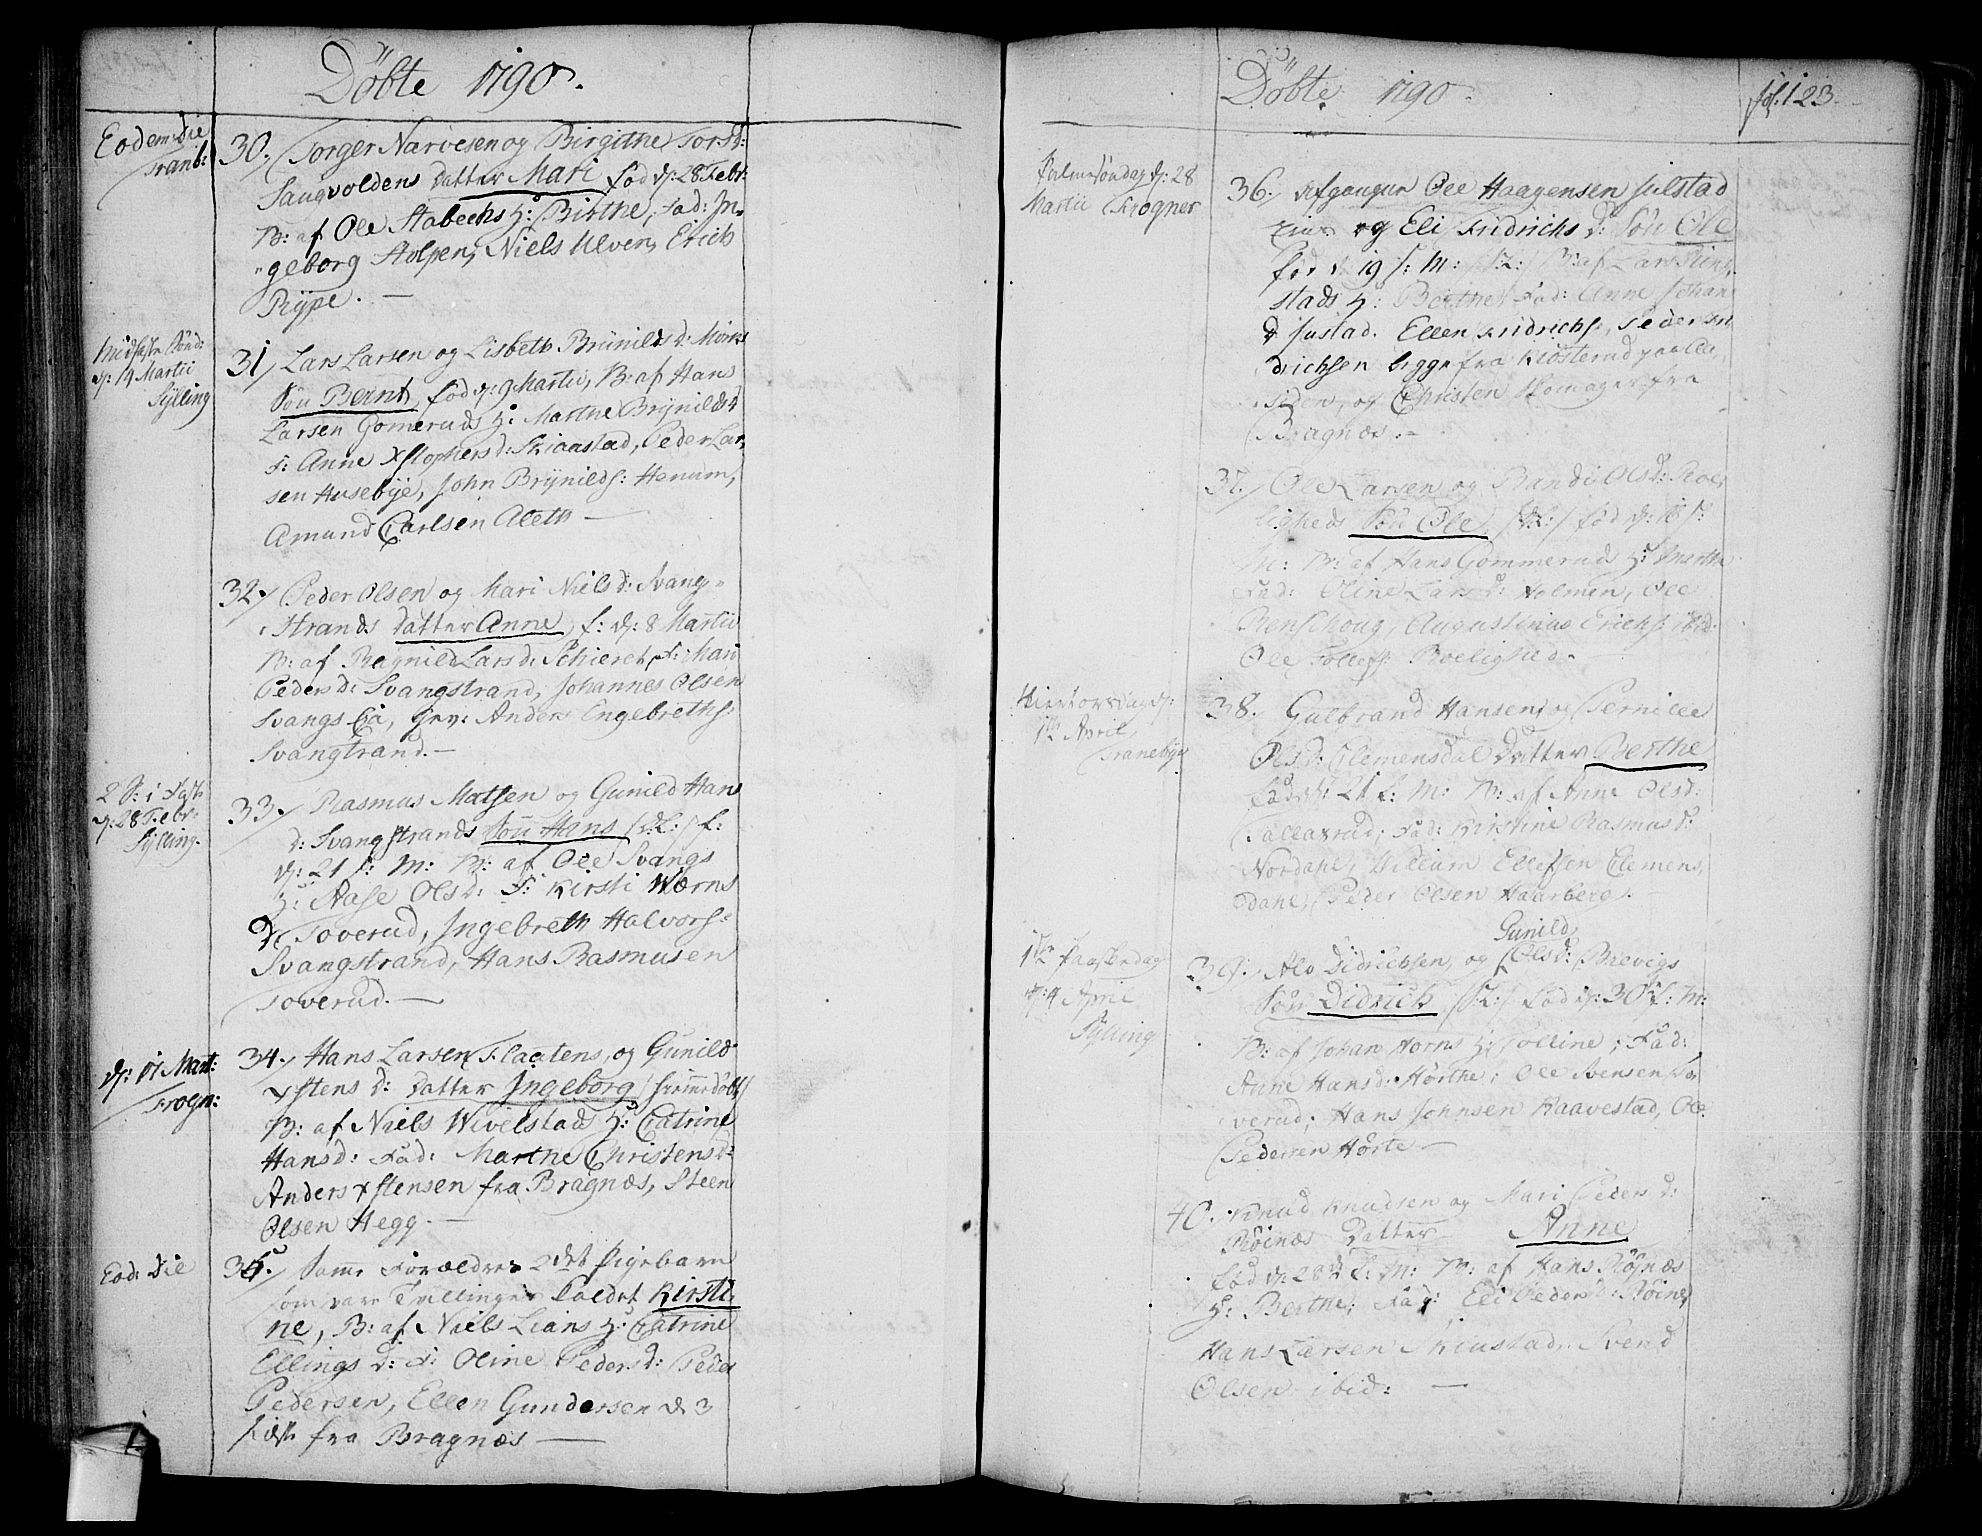 Döbte 1790.
Eodem Die
Tranb:
30. Torger Narvesen og Birgithe Torsd:
Saugvoldens Datter Mari fød d: 28 Febr:
B: af Ole Stabechs H: Birthe, Fad: In-
geborg Stolpen, Niels Ulven, Erich
Rype. —
Midfaste Sönd:
d: 14 Martii
Sylling
31/ Lars Larsen og Lisbeth Brünilds d: Mörks
Sön Bernt, fød d: 9 Martii, B: af Hans
Larsen Gomeruds H: Marthe Brynilds d
F: Anne Xstophersd: Skiaastad, Peder Lar-
sen Husebye, John Brynilds: Henum,
Amund Carlsen Aleth —
32./ Peder Olsen og Mari Niels d: Svang-
strands Datter Anne f: d: 8 Martii
B: af Ragnild Lars d: Schieret, F: Mari
Peders d: Svangstrand, Johannes Olsen
Svangs Eie, Gry: Anders Engebreths:
Svangtrand. —
2 S: i Fast:
d: 28 Febr:
Sylling.
33./ Rasmus Matsen og Gunild Hans
d: Svangstrands Sön Hans /S:L:/ f:
d: 21 f: M: B: af Ole Svangs
H: Aase Olsd: F: Kirsti Wærns
d: Toverud, Ingebreth Halvors:
Svangstrand, Hans Rasmusen
Toverud. —
d: 17 Mart:
Frogn:
34./ Hans Larsen Flaatens, og Gunild
Xstens d: Datter Ingeborg /hiemmedöbt/
B: af Niels Wivelstads H: Catrine
Hansd: Fad: Marthe Christensd:
Anders Xstensen fra Bragnæs, Steen
Olsen Hegg. —
Eod: Die
35./ Samme Forældres 2det Pigebarn
som vare Tvillinger kaldet Kirsti-
ne, B: af Niels Lians H: Catrine
Ellings d: F: Oline Peders d: Peder
Pedersen, Ellen Gundersen d 3
sidste fra Bragnæs —
Döbte 1790.
fol: 123.
Palmesöndag d: 28
Martii Frogner
36. Afgangen Ole Haagensen Julstad
Eie og Eli Fridrichs d: Sön Ole
fød d 19 f: M: /S:L:/ B: af Lars
stads H: Berthe Fad: Anne Johan
d Justad. Ellen Fridrichs, Peder Fri
drichsen begge fra Klosterud paa
siden, og Christen Skomager fra
Bragnæs. —
37./ Ole Larsen og Randi Olsd: Roe-
ligheds Sön Ole /S:L:/ fød d: 16 f:
M: B: af Hans Gommeruds H: Marthe
Fad: Oline Larsd: Holmen, Ole
Renschoug, Augustinus Erichs: ibid:
Ole Tollefs: Roelighed. —
Skiertorsdag d:
1ste April
Tranebye
38. Gulbrand Hansen og Pernille
Olsd: Clemensdal Datter Berthe
fød d: 21 f: M: B: af Anne Olsd:
Tallaxrud, Fad: Kirstine Rasmusd:
Nordahl, Villum Ellefsen Clemens-
dahl, Peder Olsen Haarberg. —
1ste Paaskedag
d: 4 April
Sylling
39./ Alv Didrichsen, og Gunild Olsd: Brevigs
Sön Didrich /S:L:/ fød d: 30 f: M:
B: af Johan Horns H: Tolline, Fad:
Anne Hansd: Hörthe, Ole Svensen To
verud, Hans Johnsen Haavestad, Ole
Pedersen Hörte —
40. Knud Knudsen og Mari Peders d:
Röinæs Datter Anne
fød d: 28de f: M: B: af Hans Rögnæs
H: Berthe, Fad: Eli Pedersd: Röinæs
Hans Larsen Skiustad. Svend
Olsen ibid: —